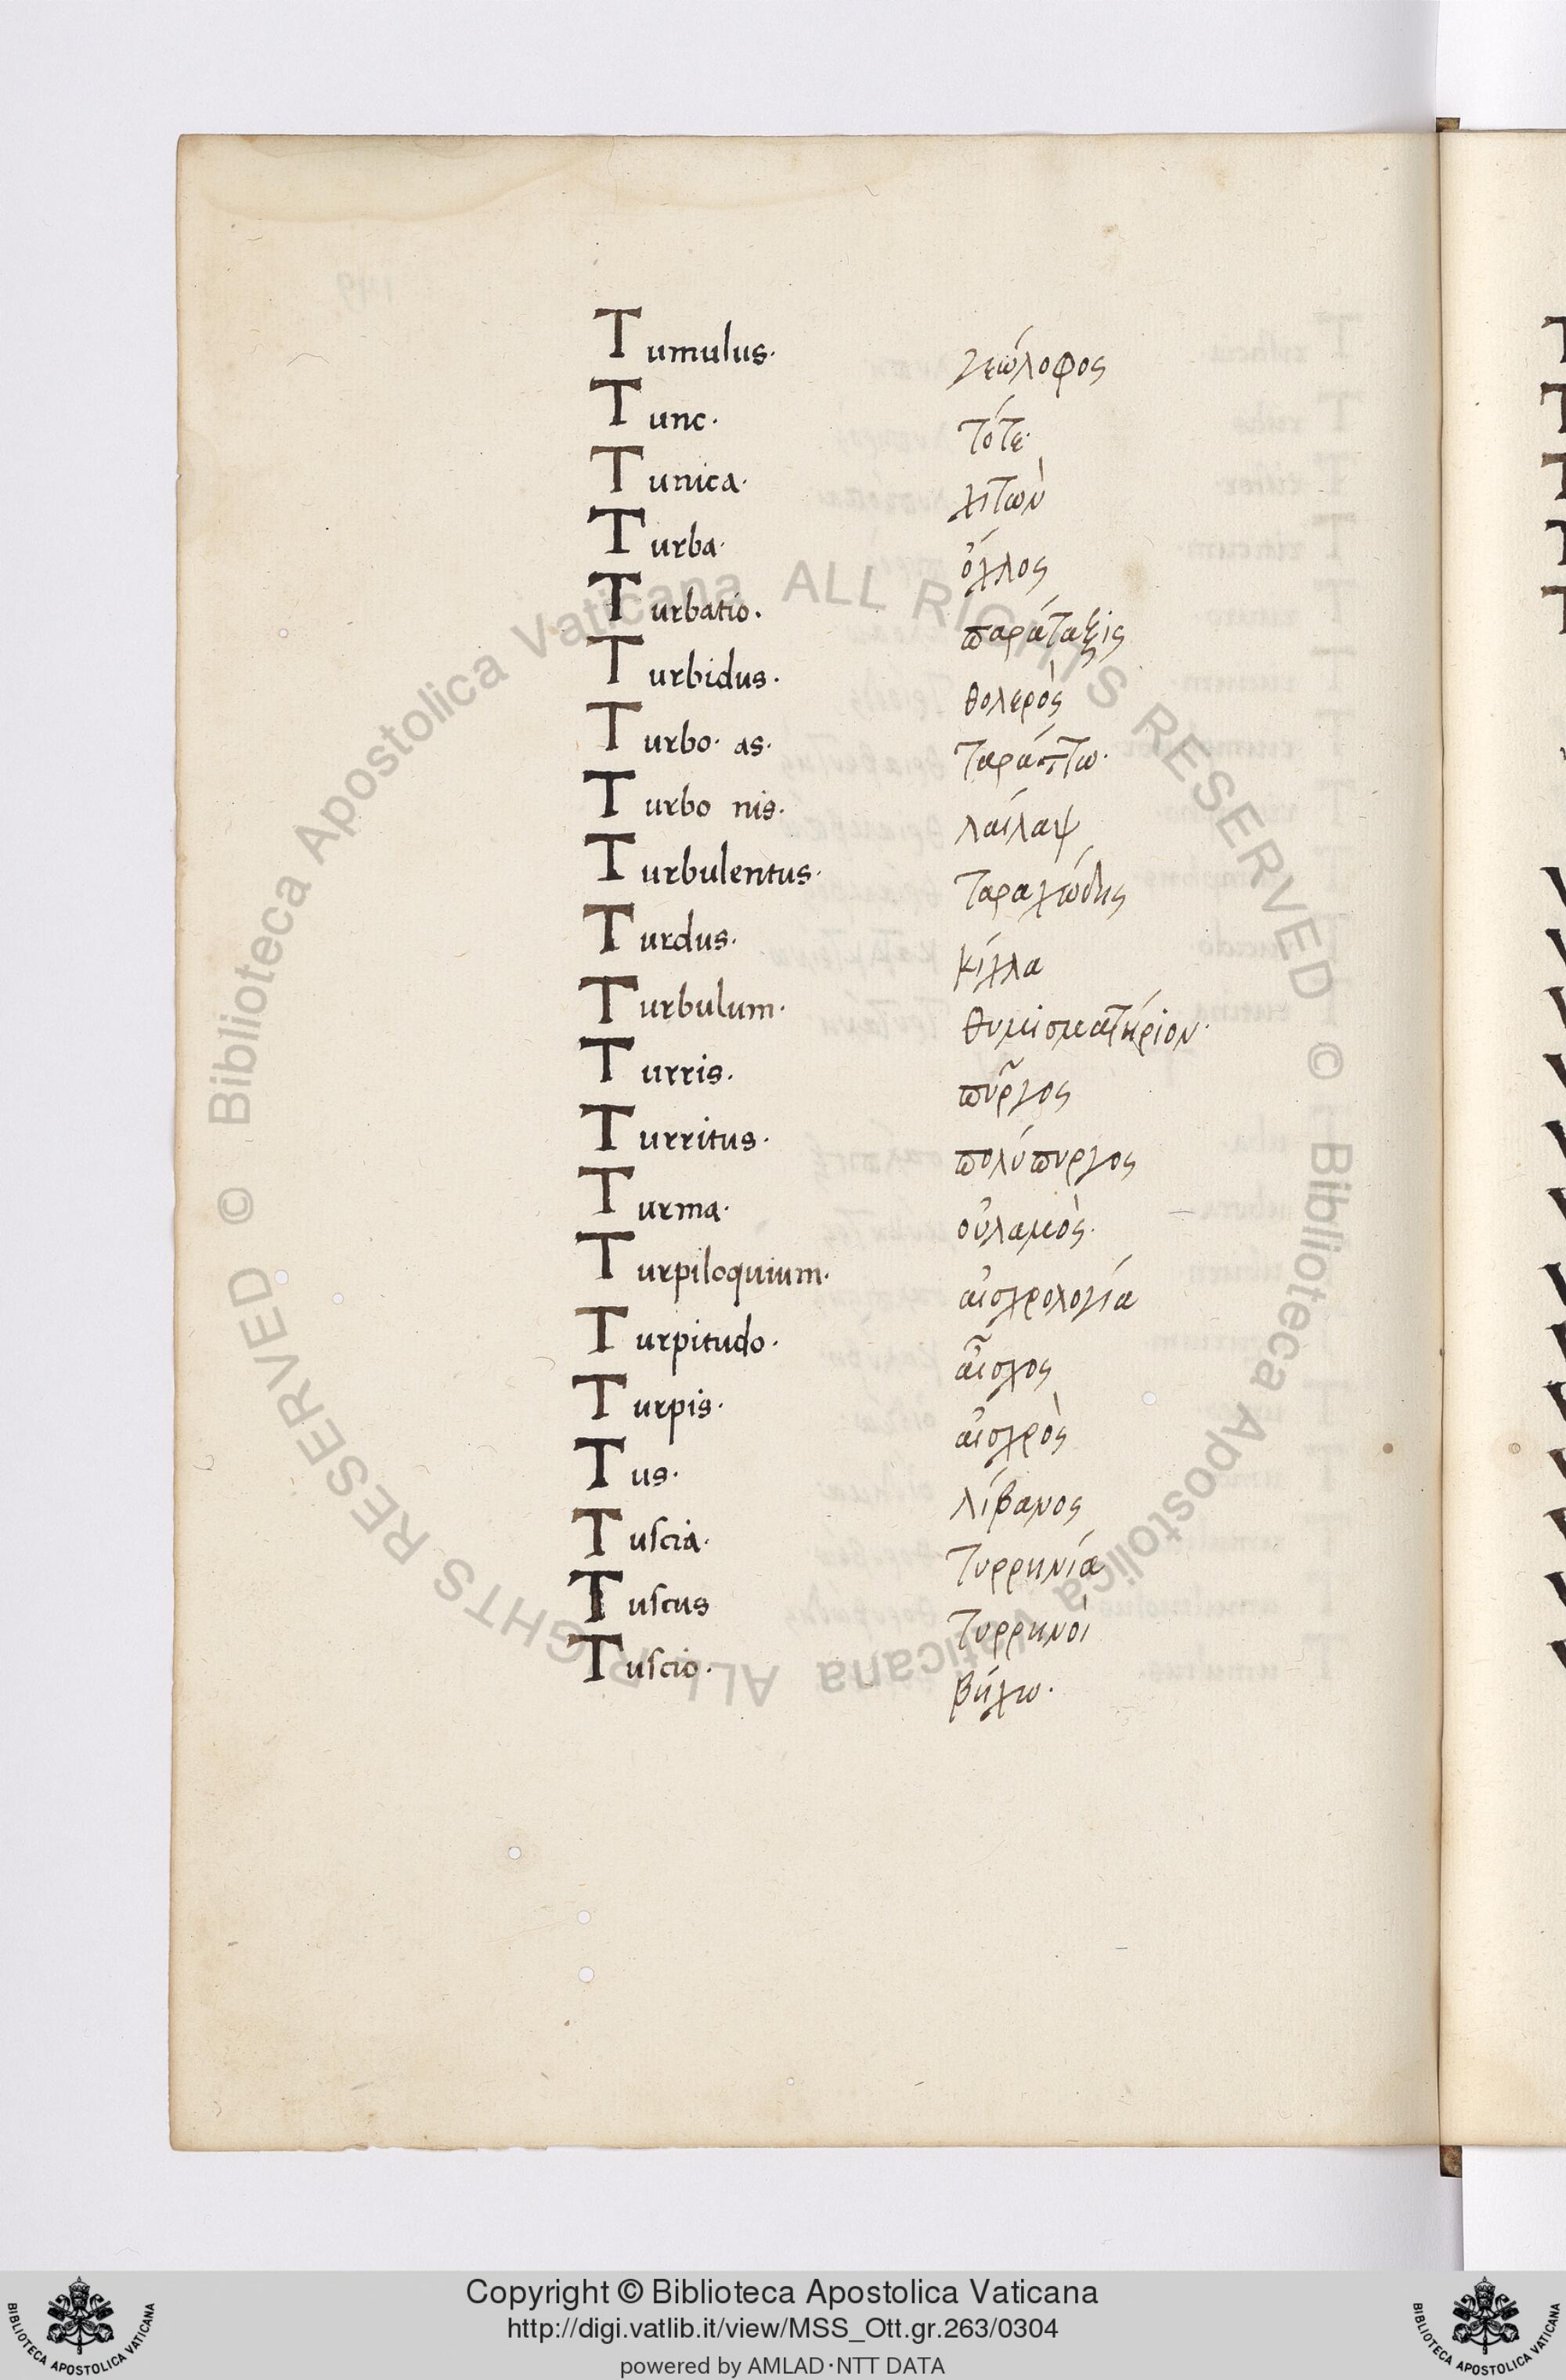 Tumulus· γεώλοφος
Tunc· τότε·
Tunica· χιτὼν
Turba· ὄχλος
Turbatio. παράταξις
Turbidus· θολερὸς
Turbo· as· ταράττω·
Turbo nis· λαίλαψ
Turbulentus· ταραχώδης
Turdus· κίχλα
Turbulum· θυμισματήριον·
Turris· πῦργος
Turritus· πολύπυργος
Turma· οὐλαμὸς·
Turpiloquium· αἰσχρολογία
Turpitudo· αἶσχος
Turpis· αἰσχρὸς
Tus· λίβανος
Tuscia· τυρρηνία
Tuscus τυρρηνὸι
Tuscio· βήχω·
© Biblioteca Apostolica Vaticana ALL RIGHTS RESERVED
© Biblioteca Apostolica Vaticana ALL RIGHTS RESERVED
Copyright © Biblioteca Apostolica Vaticana
http://digi.vatlib.it/view/MSS_Ott.gr.263/0304
powered by AMLAD·NTT DATA
BIBLIOTECA APOSTOLICA VATICANA
BIBLIOTECA APOSTOLICA VATICANA